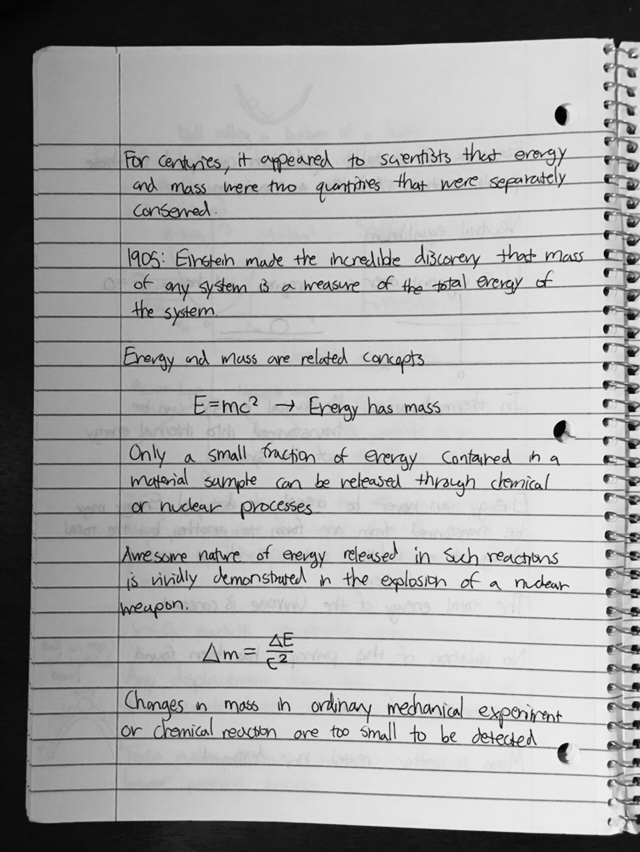 For centuries, it appeared to scientists that energy
and mass were two quantities that were separately
conserved.
1905: Einstein made the incredible discovery that mass
of any system is a measure of the total energy of
the system
Energy and mass are related concepts
E=mc² → Energy has mass
Only a small fraction of energy contained in a
material sample can be released through chemical
or nuclear processes
Awesome nature of energy released in such reactions
is vividly demonstrated in the explosion of a nuclear
weapon.
Δm = ΔE/c²
Changes in mass in ordinary mechanical experiment
or chemical reaction are too small to be detected